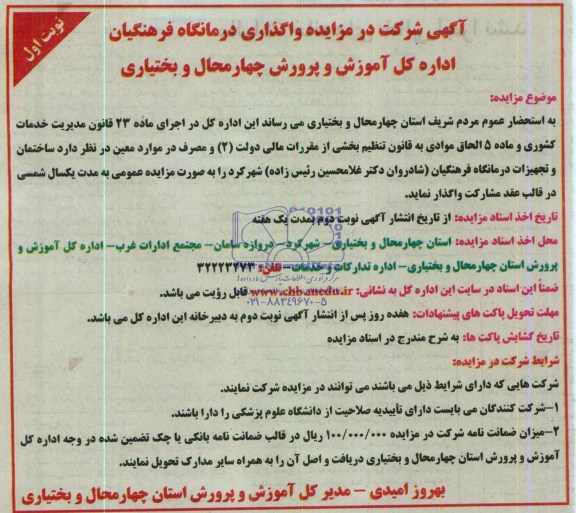 نوبت اول
آگهی شرکت در مزایده واگذاری درمانگاه فرهنگیان
اداره کل آموزش و پرورش چهارمحال و بختیاری
موضوع مزایده:
به استحضار عموم مردم شریف استان چهارمحال و بختیاری می رساند این اداره کل در اجرای ماده ۲۳ قانون مدیریت خدمات
کشوری و ماده ۵ الحاق موادی به قانون تنظیم بخشی از مقررات مالی دولت (۲) و مصرف در موارد معین در نظر دارد ساختمان
و تجهیزات درمانگاه فرهنگیان (شادروان دکتر غلامحسین رئیس زاده) شهرکرد را به صورت مزایده عمومی به مدت یکسال شمسی
در قالب عقد مشارکت واگذار نماید.
تاریخ اخذ اسناد مزایده: از تاریخ انتشار آگهی نوبت دوم بمدت یک هفته
محل اخذ اسناد مزایده: استان چهارمحال و بختیاری- شهرکرد- دروازه سامان- مجتمع ادارات غرب- اداره کل آموزش و
پرورش استان چهارمحال و بختیاری- اداره تدارکات و خدمات- تلفن: ۳۲۲۲۳۲۷۳
ضمناً این اسناد در سایت این اداره کل به نشانی: www.chbanedu.ir قابل رؤیت می باشد.
۰۲۱-۸۸۳۴۹۶۷۰-۵
مهلت تحویل پاکت های پیشنهادات: هفده روز پس از انتشار آگهی نوبت دوم به دبیرخانه این اداره کل می باشد.
تاریخ گشایش پاکت ها: به شرح مندرج در اسناد مزایده
شرایط شرکت در مزایده:
شرکت هایی که دارای شرایط ذیل می باشند می توانند در مزایده شرکت نمایند.
۱-شرکت کنندگان می بایست دارای تأییدیه صلاحیت از دانشگاه علوم پزشکی را دارا باشند.
۲-میزان ضمانت نامه شرکت در مزایده ۱۰۰/۰۰۰/۰۰۰ ریال در قالب ضمانت نامه بانکی یا چک تضمین شده در وجه اداره کل
آموزش و پرورش استان چهارمحال و بختیاری دریافت و اصل آن را به همراه سایر مدارک تحویل نمایند.
بهروز امیدی - مدیر کل آموزش و پرورش استان چهارمحال و بختیاری